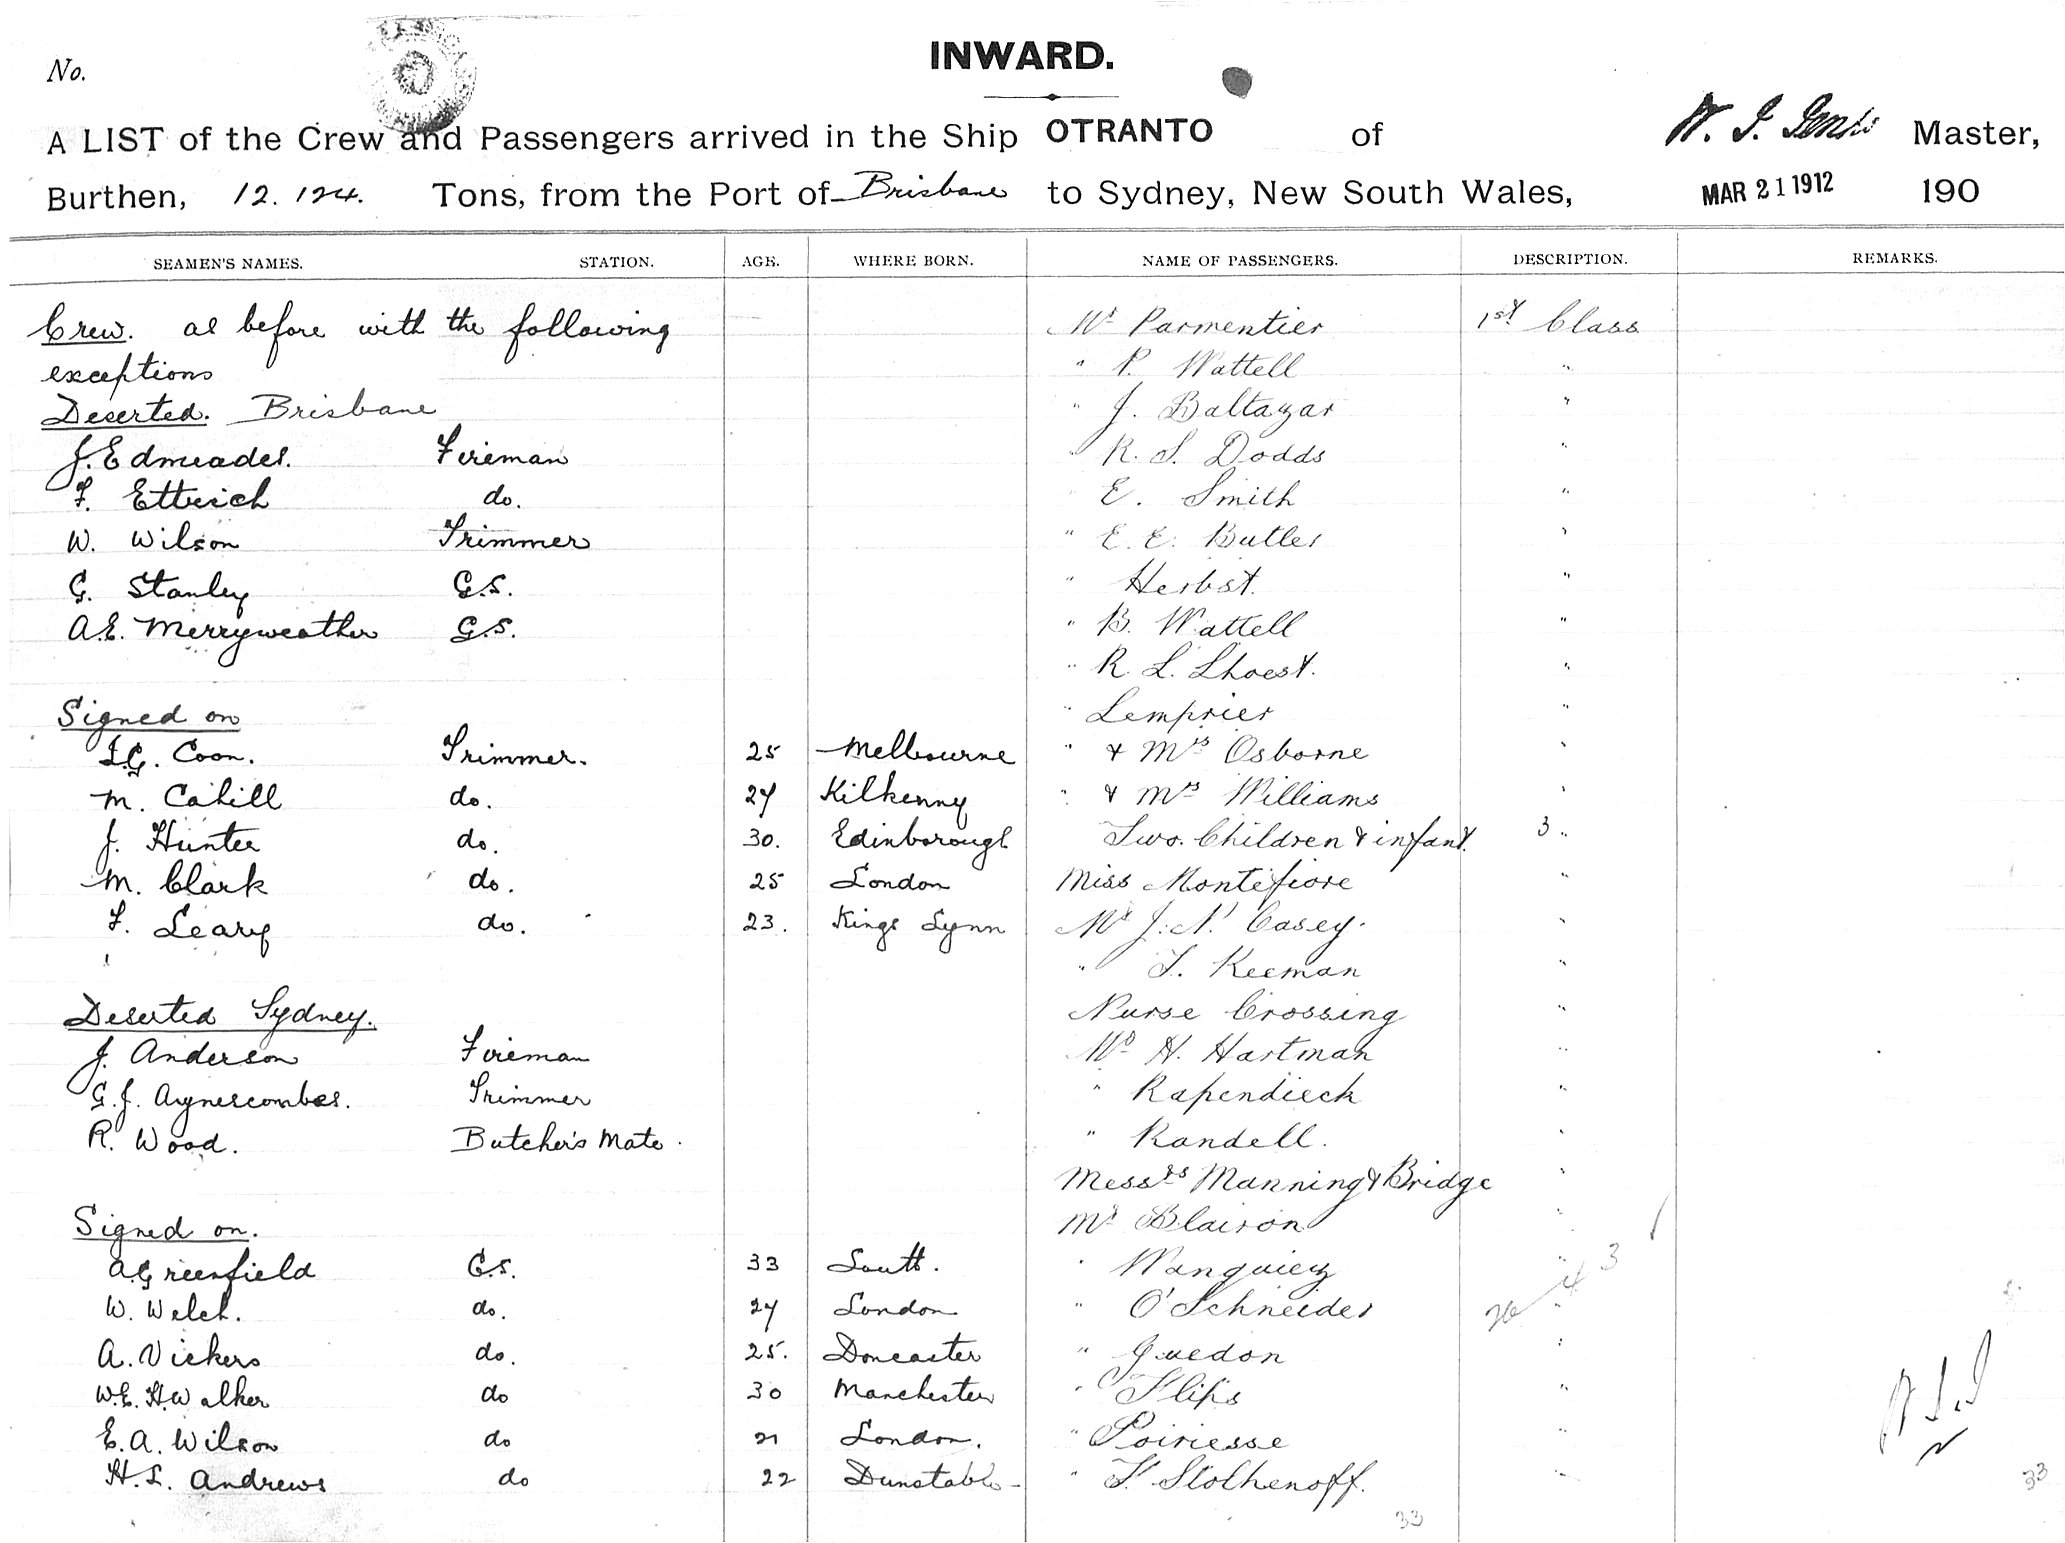 INWARD.
No.
A LIST of the Crew and Passengers arrived in the Ship OTRANTO of W. J. Master,
Burthen, 12.124. Tons, from the Port of Brisbane to Sydney, New South Wales, MAR 21 1912 190
SEAMEN'S NAMES. STATION. AGE. WHERE BORN. NAME OF PASSENGERS. DESCRIPTION. REMARKS.
Crew. as before with the following Mr Parmentier 1st Class
exceptions " P. Wattell "
Deserted. Brisbane " J. Baltazar "
J. Edmeades. Fireman " R. S. Dodds "
F. Ettrich do. " E. Smith "
W. Wilson Trimmer " E. E. Butler "
G. Stanley G.S. " Herbst. "
A.E. Merryweather G.S. " B. Wattell "
" R. L. Lhoest. "
Signed on " Lemprier "
Coon. Trimmer. 25 Melbourne " & Mrs Osborne "
M. Cahill do. 24 Kilkenny " & Mrs Williams "
J. Hunter do. 30. Edinborough Two. Children & infant. 3 "
M. Clark do. 25 London Miss Montefiore "
F. Leary do. 23. Kings Lynn Mr J. N. Casey. "
" T. Keeman "
Deserted Sydney. Nurse Crossing "
J. Anderson Fireman Mr H. Hartman "
G.J. Aynescombes. Trimmer " Rapendieck "
R. Wood. Butcher's Mate. " Randell. "
Messrs Manning & Bridge "
Signed on. Mr Blairon "
A. Greenfield G.S. 33 South. " Wanquiez " 3
W. Welch. do. 24 London " O'Schneider 26 4 "
A. Vickers do. 25. Doncaster " Guedon "
W.E.H. Walker do 30 Manchester " Flips "
E.A. Wilson do 21 London. " Poiriesse "
H.L. Andrews do 22 Dunstable " F. Stolhenoff. "
33
33